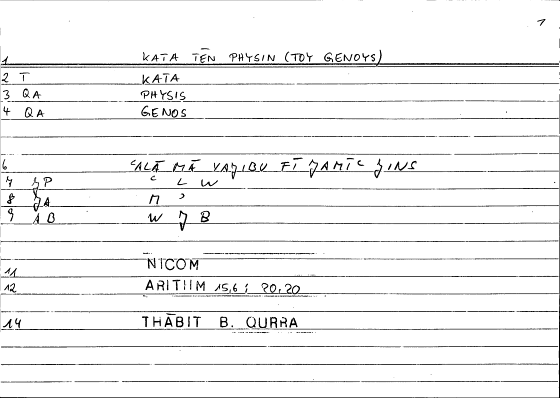 1
1 KATA TĒN PHYSIN (TOY GENOYS)
2 T KATA
3 QA PHYSIS
4 QA GENOS
6 ʿALĀ MĀ YAJIBU FĪ JAMĪʿ JINS
7 JP ʿ L W
8 JA M ʾ
9 AB W J B
11 NICOM
12 ARITHM 15,6 ; 20,20
14 THĀBIT B. QURRA